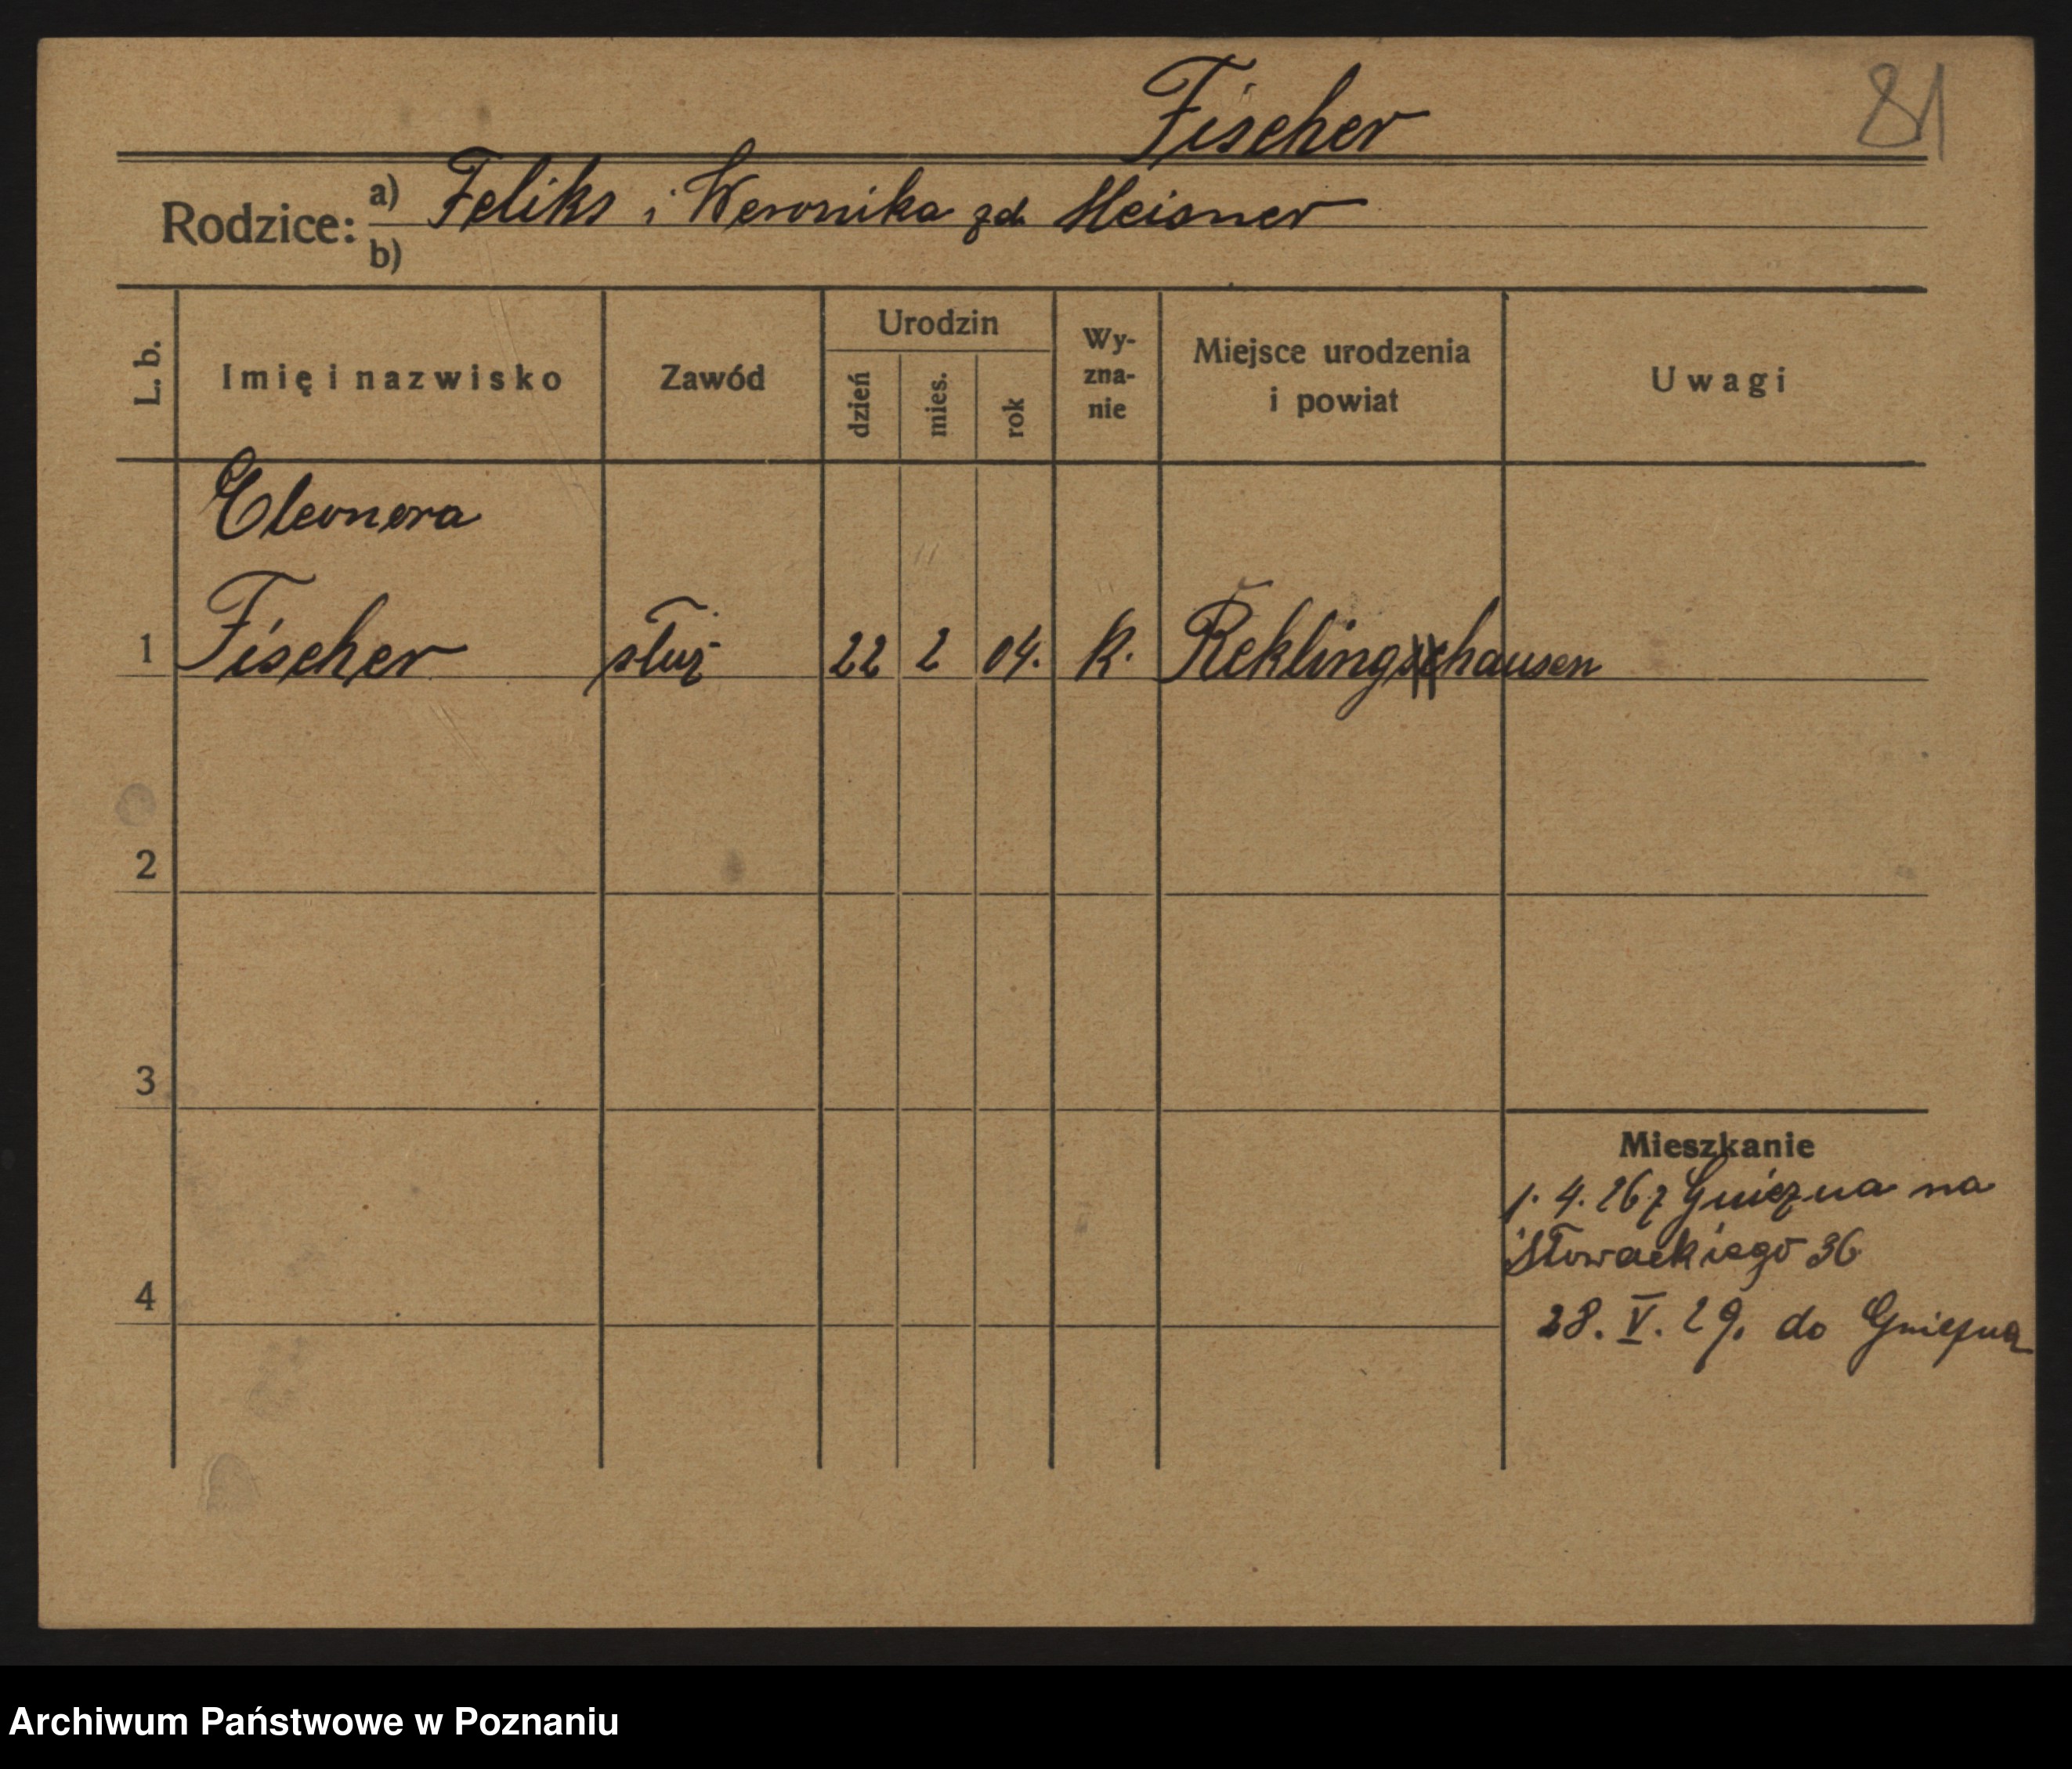 Fischer
81
Rodzice: a) Feliks i Weronika zd. Meisner
b)
L. b. Imię i nazwisko Zawód Urodzin dzień mies. rok Wy-zna-nie Miejsce urodzenia i powiat Uwagi
Eleonora
1 Fischer służ 22 2 04. K. Reklinghausen
2
3
Mieszkanie
1. 4. 26 z Gniezna na
Słowackiego 36
4
28. V. 29. do Gniezna
Archiwum Państwowe w Poznaniu